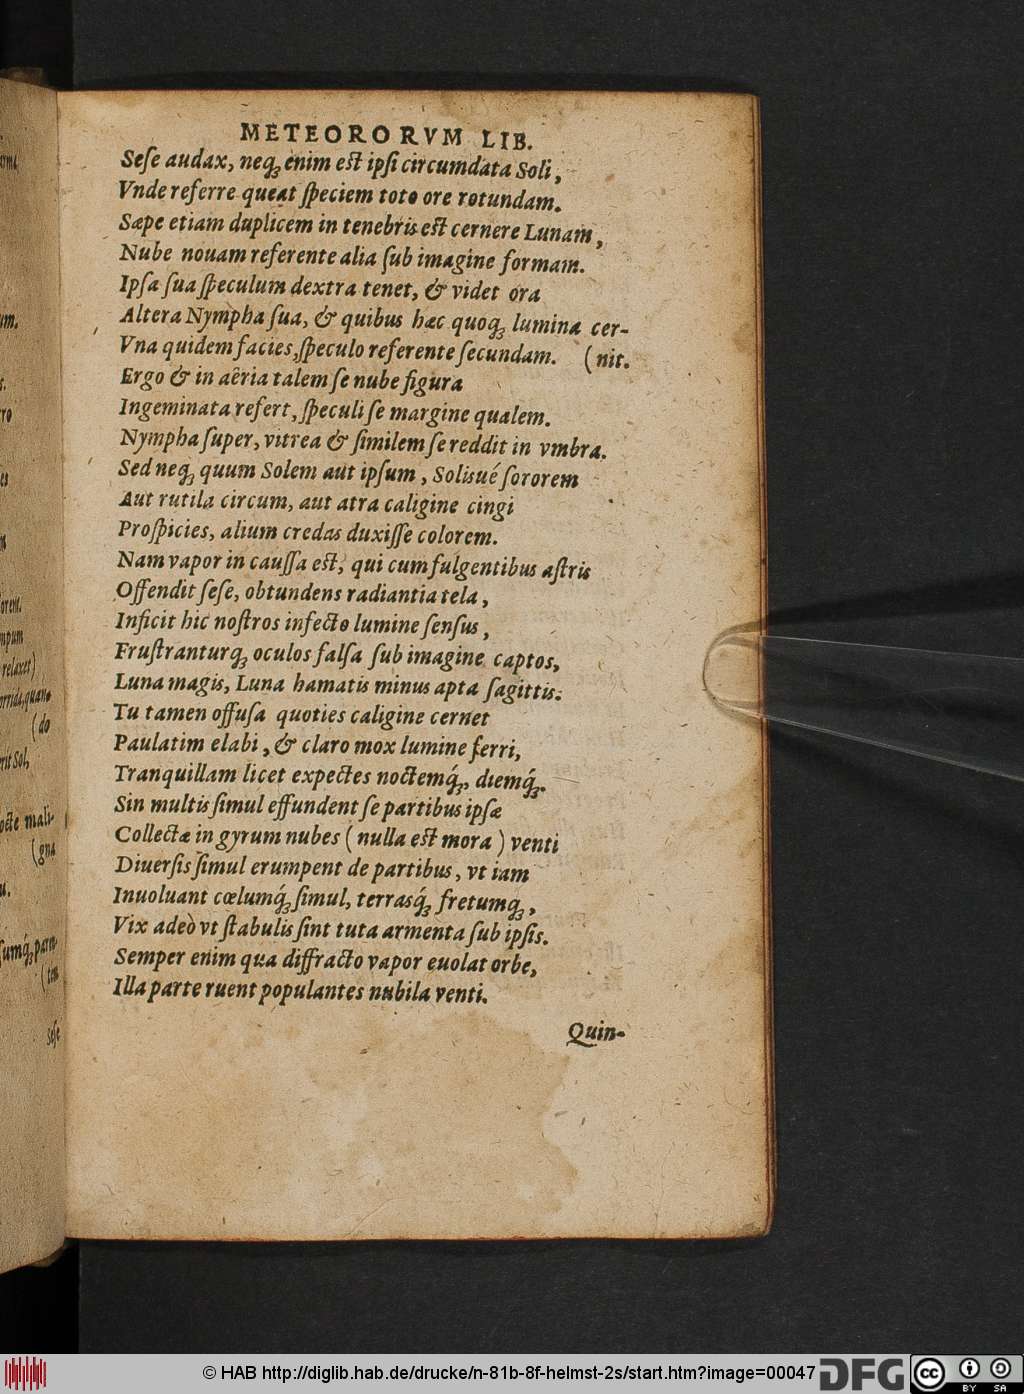 METEORORVM LIB.
Seſe audax, neq; enim eſt ipſi circumdata Soli,
Vnde referre queat ſpeciem toto ore rotundam.
Sæpe etiam duplicem in tenebris eſt cernere Lunam,
Nube nouam referente alia ſub imagine formam.
Ipſa ſua ſpeculum dextra tenet, & videt ora
Altera Nympha ſua, & quibus hæc quoq; lumina cer-
Vna quidem facies, ſpeculo referente ſecundam. (nit.
Ergo & in aëria talem ſe nube figura
Ingeminata refert, ſpeculi ſe margine qualem.
Nympha ſuper, vitrea & ſimilem ſe reddit in vmbra.
Sed neq; quum Solem aut ipſum, Solisué ſororem
Aut rutila circum, aut atra caligine cingi
Proſpicies, alium credas duxiſſe colorem.
Nam vapor in cauſſa eſt, qui cum fulgentibus aſtris
Offendit ſeſe, obtundens radiantia tela,
Inficit hic noſtros infecto lumine ſenſus,
Fruſtranturq; oculos falſa ſub imagine captos,
Luna magis, Luna hamatis minus apta ſagittis.
Tu tamen offuſa quoties caligine cernet
Paulatim elabi, & claro mox lumine ferri,
Tranquillam licet expectes noctemq́;, diemq́;.
Sin multis ſimul effundent ſe partibus ipſæ
Collectæ in gyrum nubes (nulla eſt mora) venti
Diuerſis ſimul erumpent de partibus, vt iam
Inuoluant cœlumq́; ſimul, terrasq́; fretumq;,
Vix adeò vt ſtabulis ſint tuta armenta ſub ipſis.
Semper enim qua diffracto vapor euolat orbe,
Illa parte ruent populantes nubila venti.
Quin-
© HAB http://diglib.hab.de/drucke/n-81b-8f-helmst-2s/start.htm?image=00047
DFG
cc BY SA